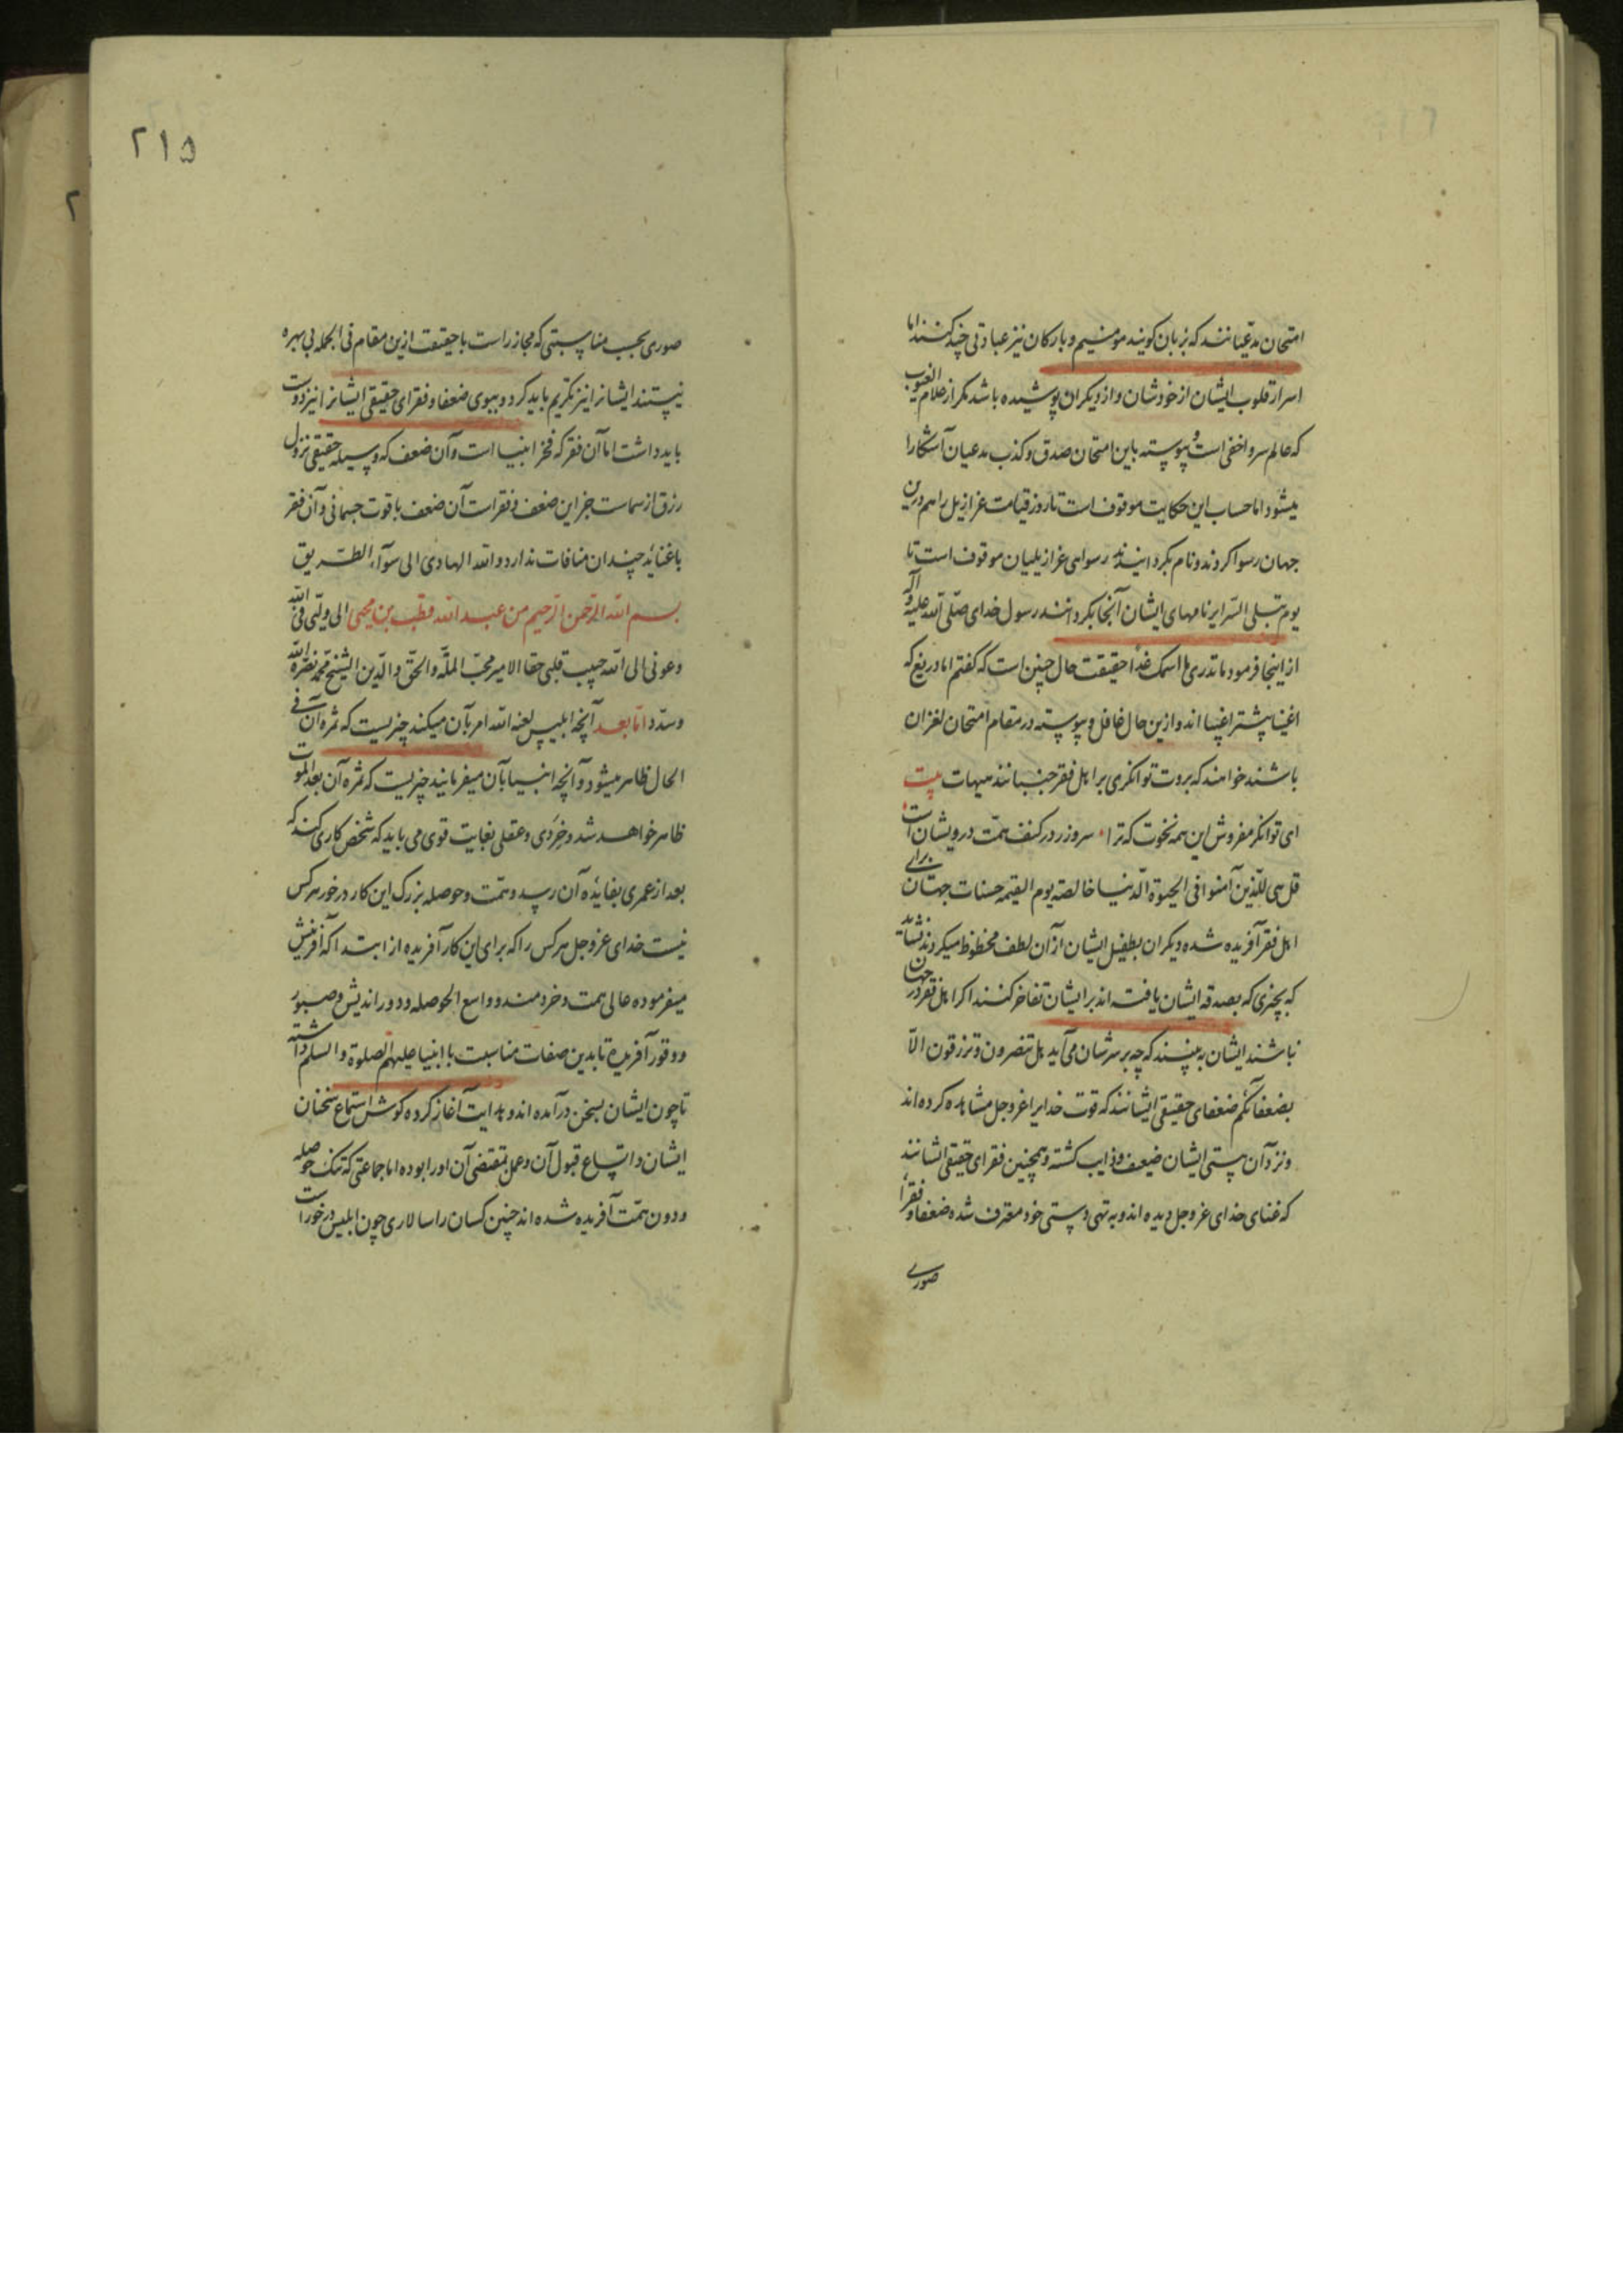 امتحان مدعیانند که بزبان کویند مومنیم و بارکان نیز عبادتی چند کنند اما
اسرار قلوب ایشان از خودشان و از دیکران پوشیده باشد مکر از علام الغیوب
که عالم سر و اخفی است و پیوسته باین امتحان صدق و کذب مدعیان آشکارا
میشود اما حساب این حکایت موقوف است تا روز قیامت عزازیل را هم درین
جهان رسوا کردند و نام بکردانیدند رسوایی عزازیلیان موقوف است تا
یوم تبلی السرایر نامهای ایشان آنجا بکردانند رسول خدای صلی الله علیه وآله
از اینجا فرمود ما تدری ما اسمک غدا حقیقت حال چنین است که کفتم اما دریغ که
اغنیا بیشتر اغبیا اند و ازین حال غافل و پیوسته در مقام امتحان لغزان
باشند خواهند که بروت توانکری بر اهل فقر جنبانند هیهات بیت
ای توانکر مفروش این همه نخوت که ترا سر و زر در کنف همت درویشان است
قل هی للذین آمنوا فی الحیوة الدنیا خالصة یوم القیمه حسنات جهان برای
اهل فقر آفریده شده دیکران بطفیل ایشان از آن لطف محظوظ میکردند نشاید
که بچیزی که بصدقه ایشان یافته اند بر ایشان تفاخر کنند اکر اهل فقر در جهان
نباشند ایشان به بینند که چه بر سرشان می آید هل تنصرون و ترزقون الا
بضعفائکم ضعفای حقیقی ایشانند که قوت خدایرا عز و جل مشاهده کرده اند
و نزد آن هستی ایشان ضعیف و ذایب کشته و همچنین فقرای حقیقی ایشانند
که غنای خدای عز و جل دیده اند و به تهی دستی خود معترف شده ضعفا و فقراء
صوری
۲۱۵
صوری بحسب مناسبتی که مجاز راست با حقیقت ازین مقام فی الجمله بی بهره
نیستند ایشانرا نیز تکریم باید کرد و ببوی ضعفا و فقرای حقیقی ایشانرا نیز دوست
باید داشت اما آن فقر که فخر انبیا است و آن ضعف که وسیله حقیقی نزول
رزق از سماست جز این ضعف و فقر است آن ضعف با قوت جسمانی و آن فقر
با غنا ید چندان منافات ندارد و الله الهادی الی سوآء الطریق
بسم الله الرحمن الرحیم من عبد الله قطب بن محیی الی ولیی فی الله
وعونی الی الله حبیب قلبی حقا الامیر محب المله والحق والدین الشیخ محمد نصره الله
وسدد اما بعد آنچه ابلیس لعنه الله امر بآن میکند چیزیست که ثمره آن فی
الحال ظاهر میشود و آنچه انبیا بآن میفرمایند چیزیست که ثمره آن بعد الموت
ظاهر خواهد شد و خردی و عقلی بغایت قوی می باید که شخص کاری کند که
بعد از عمری بفایده آن رسد و همت و حوصله بزرک این کار در خور هر کس
نیست خدای عز و جل هر کس را که برای این کار آفریده از ابتدا که آفرینش
میفرموده عالی همت و خردمند و واسع الحوصله و دور اندیش و صبور
و وقور آفریده تا بدین صفات مناسبت با انبیا علیهم الصلوة و السلم داشته
تا چون ایشان بسخن درآمده اند و هدایت آغاز کرده کوش استماع سخنان
ایشان و اتباع قبول آن و عمل بمقتضی آن اورا بوده اما جماعتی که تنک حوصله
و دون همت آفریده شده اند چنین کسان را سالاری چون ابلیس در خور است